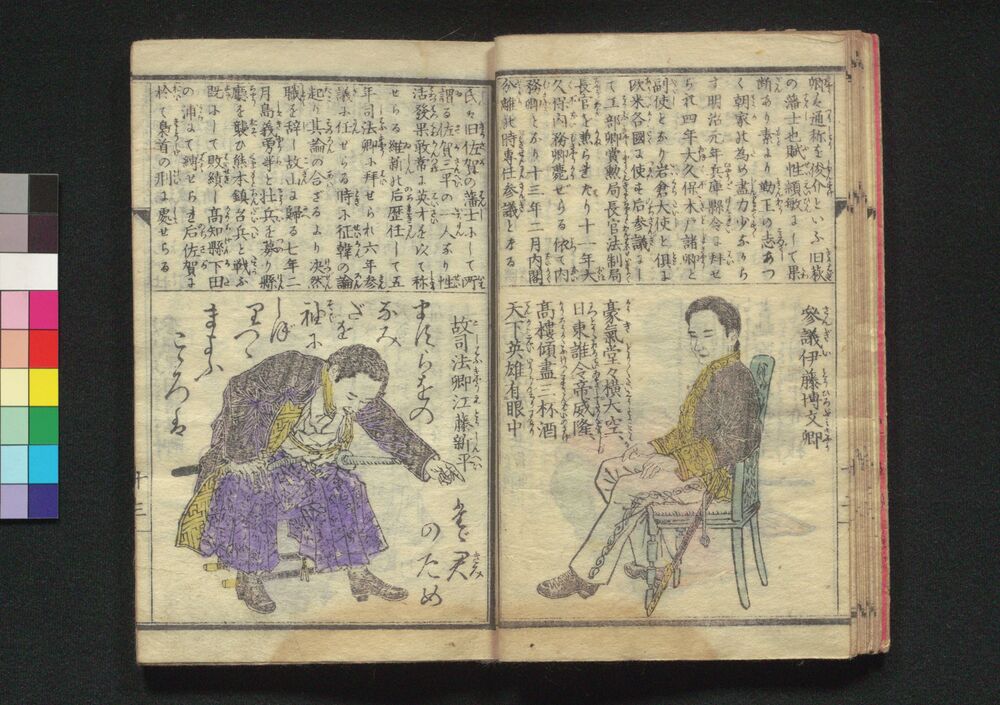 卿は通称を俊介といふ旧萩
の藩士也賦性穎敏にして果
断あり素より勤王の志あつ
く朝家の為め盡力少なから
す明治元年兵庫縣令に拜せ
られ四年大久保木戸諸卿と
副使となり岩倉大使と倶に
欧米各國に使す后参議にし
て工部卿賞勲局長官法制局
長官を兼らまたり十一年大
久保内務卿薨せらるゝ依て内
務卿となり十三年二月内閣
分離の時專任参議となる
參議伊藤博文卿
豪氣堂々横大空
日東誰令帝威隆
高樓傾盡三杯酒
天下英雄有眼中
氏ハ旧佐賀の藩士にして所
謂る佐賀一平の一人なり性
活發果敢常に英才を以て称
せらる維新の后歴任して五
年司法卿に拜せられ六年参
議に任せらる時に征韓の論
起り其論の合ざるより决然
職を辞して故山に歸る七年二
月島義勇等と壮兵を募り縣
廳を襲ひ熊本鎮台兵と戦ふ
既にして敗績し高知縣下田
の浦にて縛せらま后佐賀に
於て梟首の刑に處せらる
故司法卿江藤新平
ますらをの
なみ
だを
袖に
しぼ
りつゝ
まよふ
こゝろは
たゞ君
のため
十三